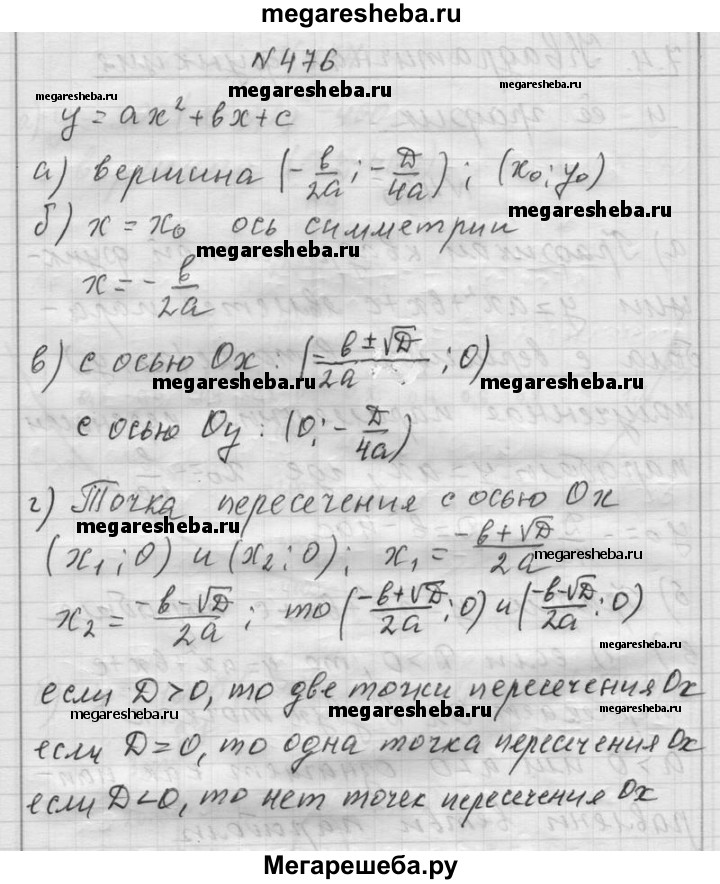 megaresheba.ru
N476
megaresheba.ru
megaresheba.ru
megaresheba.ru
y = ax² + bx + c
а) вершина (-b/2a ; -D/4a) ; (x₀; y₀)
megaresheba.ru
б) x = x₀ ось симметрии
megaresheba.ru
x = - b/2a
в) с осью Ox : (-b ± √D/2a ; 0)
megaresheba.ru
megaresheba.ru
с осью Oy : (0; - D/4a)
г) Точка пересечения с осью Ox
megaresheba.ru
(x₁; 0) и (x₂; 0); x₁ = -b + √D/2a
megaresheba.ru
x₂ = -b - √D/2a ; то (-b + √D/2a ; 0) и (-b - √D/2a ; 0)
megaresheba.ru
если D > 0, то две точки пересечения Ox
megaresheba.ru
megaresheba.ru
megaresheba.ru
если D = 0, то одна точка пересечения Ox
если D < 0, то нет точек пересечения Ox
Мегарешеба.ру